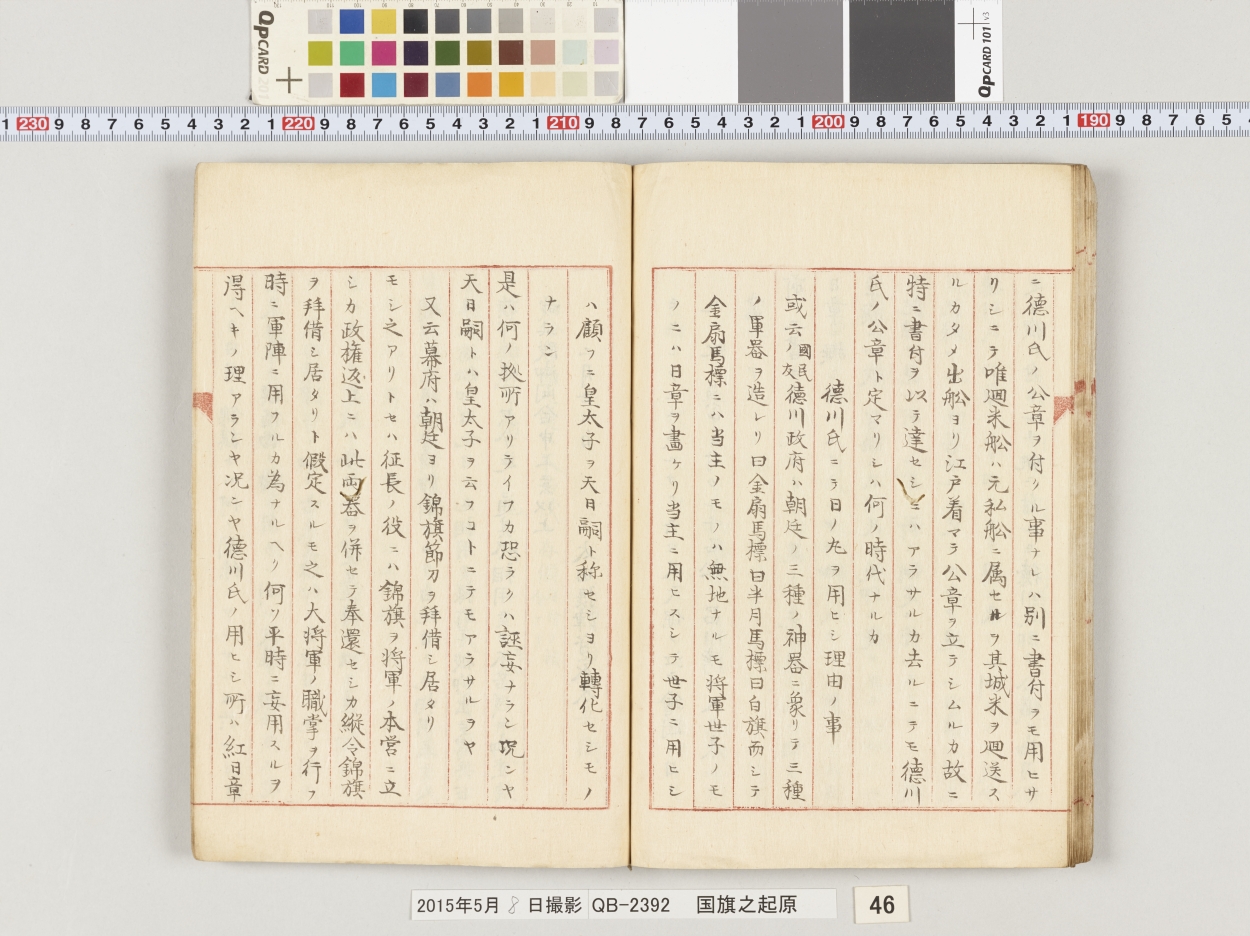 ニ德川氏ノ公章ヲ付クル事ナレハ別ニ書付ヲモ用ヒサ
リシニテ唯廻米舩ハ元私舩ニ属セルヲ其城米ヲ廻送ス
ルカタメ出舩ヨリ江戸着マテ公章ヲ立テシムルカ故ニ
特ニ書付ヲ以テ達セシニハアラサルカ去ルニテモ德川
氏ノ公章ト定マリシハ何ノ時代ナルカ
德川氏ニテ日ノ丸ヲ用ヒシ理由ノ事
或云國民ノ友德川政府ハ朝廷ノ三種ノ神器ニ象リテ三種
ノ軍器ヲ造レリ曰金扇馬標曰半月馬標曰白旗而シテ
金扇馬標ニハ当主ノモノハ無地ナルモ将軍世子ノモ
ノニハ日章ヲ畫ケリ当主ニ用ヒスシテ世子ニ用ヒシ
ハ顧フニ皇太子ヲ天日嗣ト称セシヨリ轉化セシモノ
ナラン
是ハ何ノ拠所アリテイフカ恐ラクハ誣妄ナラン况ンヤ
天日嗣トハ皇太子ヲ云フコトニテモアラサルヲヤ
又云幕府ハ朝廷ヨリ錦旗節刀ヲ拜借シ居タリ
モシ之アリトセハ征長ノ役ニハ錦旗ヲ将軍ノ本営ニ立
シカ政権返上ニハ此両器ヲ併セテ奉還セシカ縦令錦旗
ヲ拜借シ居タリト假定スルモ之ハ大将軍ノ職掌ヲ行フ
時ニ軍陣ニ用フルカ為ナルヘシ何ソ平時ニ妄用スルヲ
得ヘキノ理アランヤ况ンヤ德川氏ノ用ヒシ所ハ紅日章
2015年5月 8 日撮影 QB-2392 国旗之起原
46
QPCARD 101 v3
QPCARD 201
1 230 9 8 7 6 5 4 3 2 1 220 9 8 7 6 5 4 3 2 1 210 9 8 7 6 5 4 3 2 1 200 9 8 7 6 5 4 3 2 1 190 9 8 7 6 5